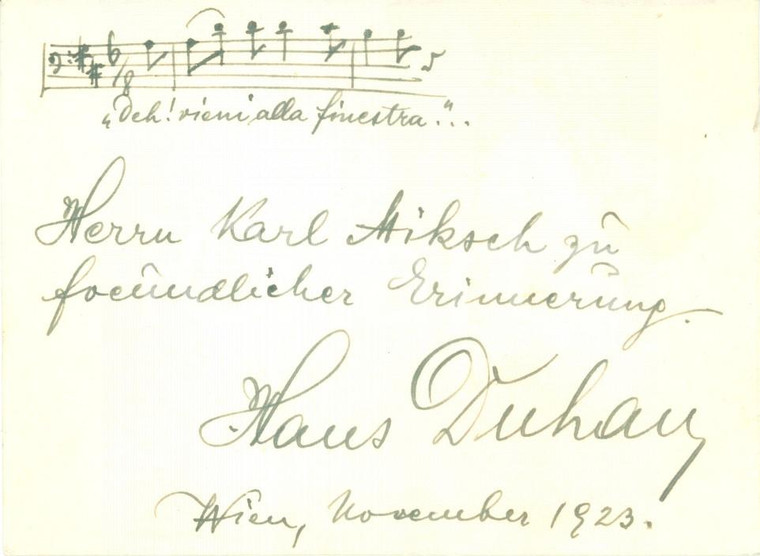 6/8
„Deh! vieni alla finestra."...
Herrn Karl Miksch zu
freundlicher Erinnerung.
Hans Duhan
Wien, November 1923.